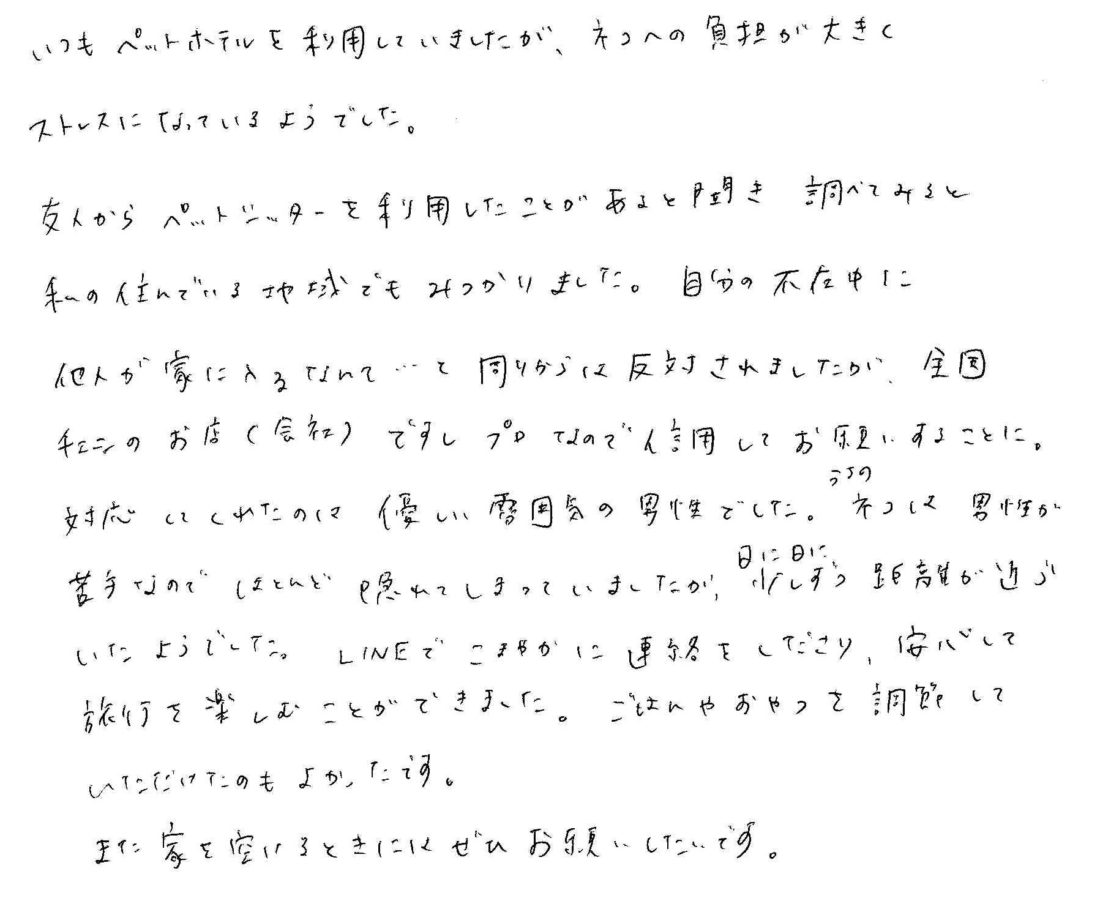 いつもペットホテルを利用していましたが、ネコへの負担が大きく
ストレスになっているようでした。
友人からペットシッターを利用したことがあると聞き 調べてみると
私の住んでいる地域でもみつかりました。自分の不在中に
他人が家に入るなんて…と周りからは反対されましたが、全国
チェーンのお店(会社)ですしプロなので信用してお願いすることに。
対応してくれたのは優しい雰囲気の男性でした。うちのネコは男性が
苦手なのでほとんど隠れてしまっていましたが、日に日に少しずつ距離が近づ
いたようでした。LINEでこまやかに連絡をしてくださり、安心して
旅行を楽しむことができました。ごはんやおやつを調節して
いただけたのもよかったです。
また家を空けるときにはぜひお願いしたいです。